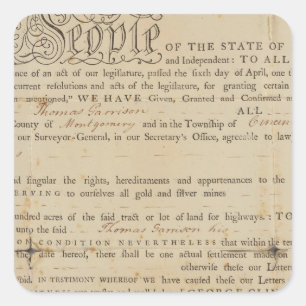 People OF THE STATE OF
and Independent: TO ALL
nce of an act of our legislature, passed the sixth day of April, one t
current resolutions and acts of the legislature, for granting certain
mentioned," WE HAVE Given, Granted and Confirmed a
Thomas Garrison ALL
County of Montgomery and in the Township of
our Surveyor-General, in our Secretary's Office, agreeable to law
and singular the rights, hereditaments and appurtenances to the
ERVING to ourselves all gold and silver mines
hundred acres of the said tract or lot of land for highways. TO
unto the said Thomas Garrison his
ON CONDITION NEVERTHELESS that within the te
the date hereof, there shall be one actual settlement made on
otherwise these our Letters
oid. IN TESTIMONY WHEREOF we have caused these our Letters